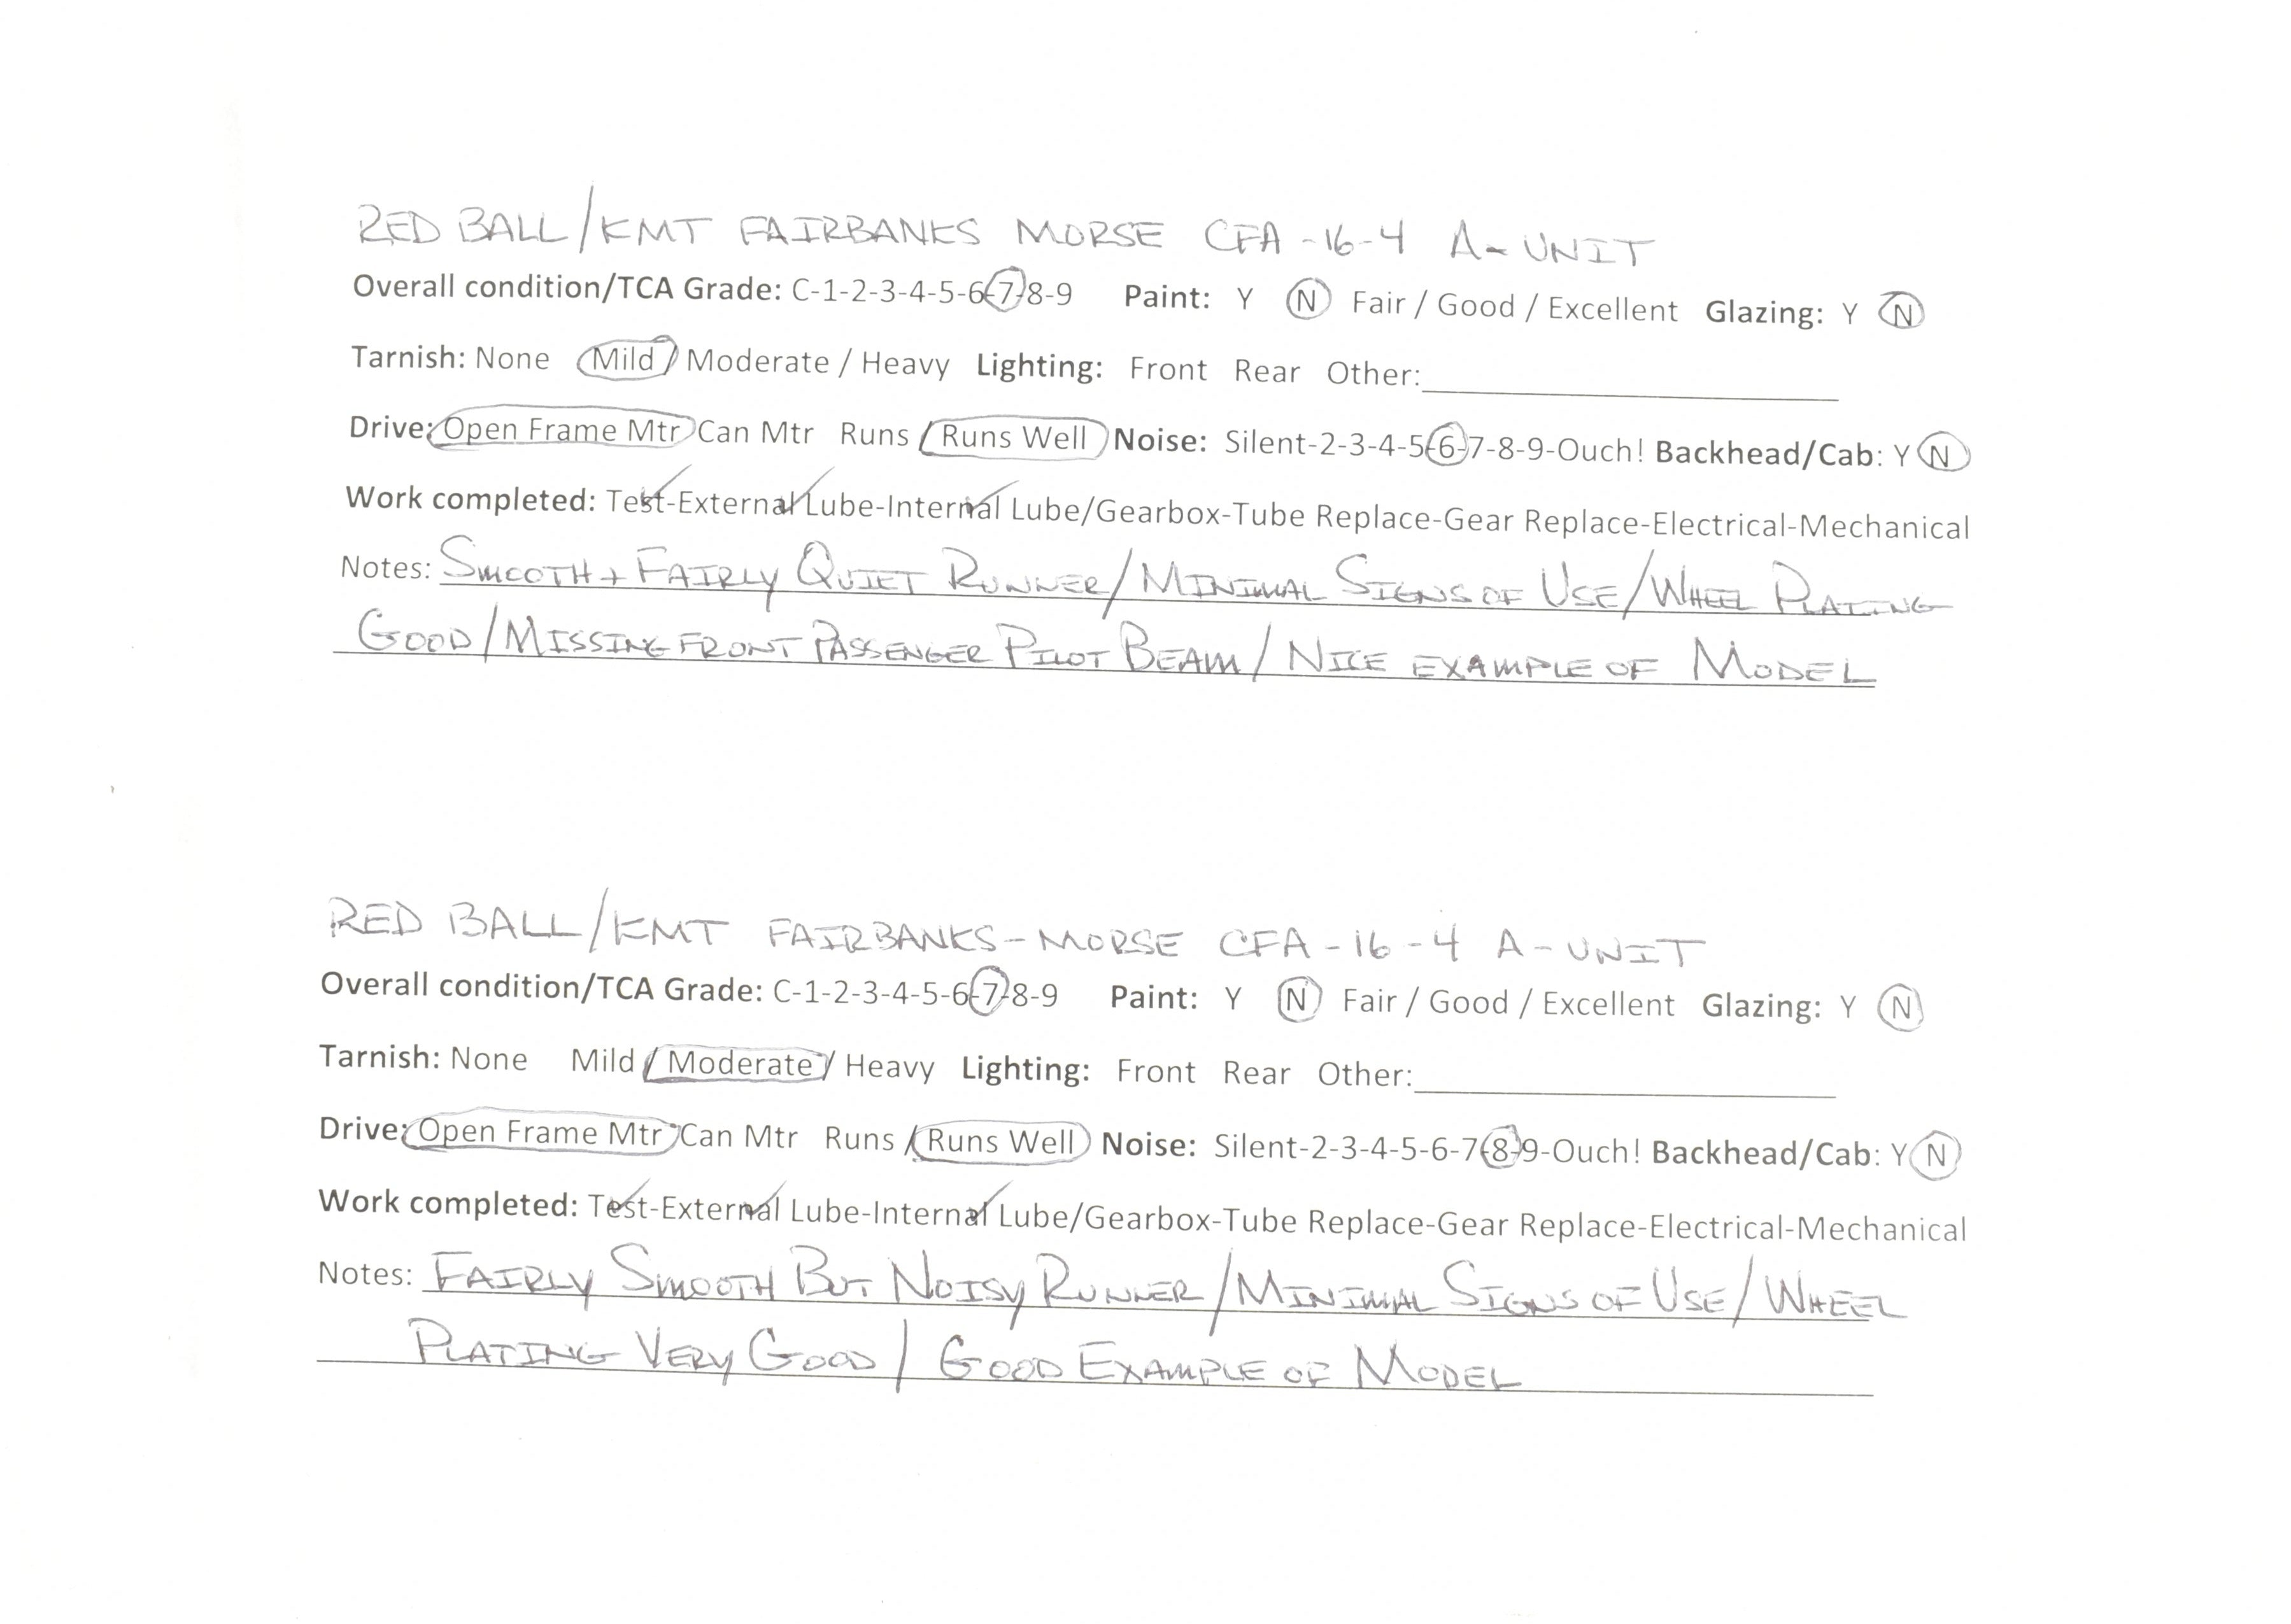 RED BALL/KMT FAIRBANKS MORSE CFA-16-4 A-UNIT
Overall condition/TCA Grade: C-1-2-3-4-5-6-7-8-9 Paint: Y N Fair / Good / Excellent Glazing: Y N
Tarnish: None Mild / Moderate / Heavy Lighting: Front Rear Other:
Drive: Open Frame Mtr Can Mtr Runs / Runs Well Noise: Silent-2-3-4-5-6-7-8-9-Ouch! Backhead/Cab: Y N
Work completed: Test-External Lube-Internal Lube/Gearbox-Tube Replace-Gear Replace-Electrical-Mechanical
Notes: SMOOTH + FAIRLY QUIET RUNNER/MINIMAL SIGNS OF USE/WHEEL PLATING
GOOD/MISSING FRONT PASSENGER PILOT BEAM/NICE EXAMPLE OF MODEL
RED BALL/KMT FAIRBANKS-MORSE CFA-16-4 A-UNIT
Overall condition/TCA Grade: C-1-2-3-4-5-6-7-8-9 Paint: Y N Fair / Good / Excellent Glazing: Y N
Tarnish: None Mild / Moderate / Heavy Lighting: Front Rear Other:
Drive: Open Frame Mtr Can Mtr Runs / Runs Well Noise: Silent-2-3-4-5-6-7-8-9-Ouch! Backhead/Cab: Y N
Work completed: Test-External Lube-Internal Lube/Gearbox-Tube Replace-Gear Replace-Electrical-Mechanical
Notes: FAIRLY SMOOTH BUT NOISY RUNNER/MINIMAL SIGNS OF USE/WHEEL
PLATING VERY GOOD/GOOD EXAMPLE OF MODEL